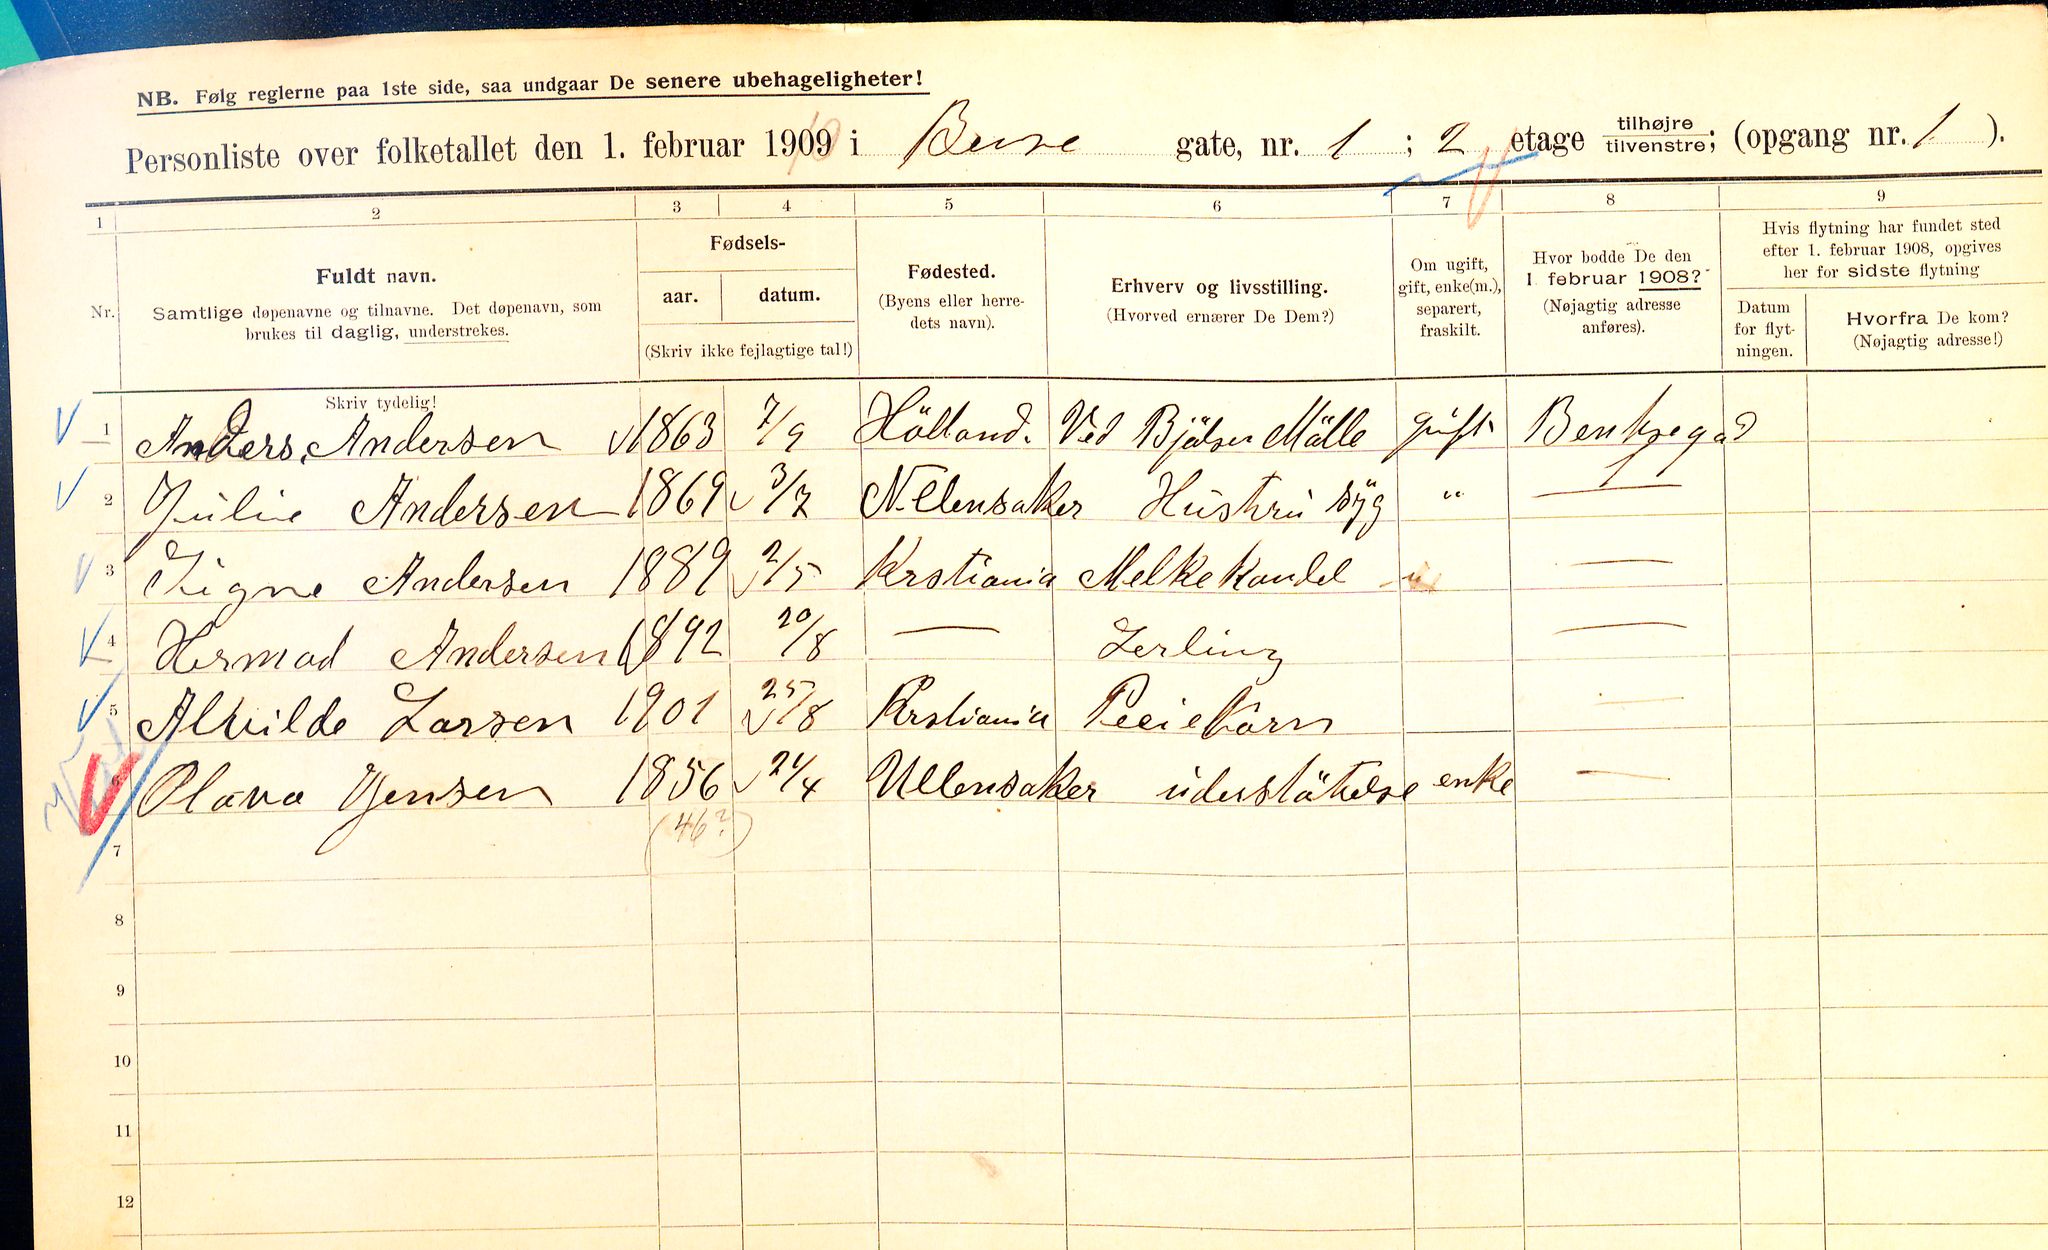 NB. Følg reglerne paa 1ste side, saa undgaar De senere ubehageligheter!
Personliste over folketallet den 1. februar 1909 i gate, nr. 1 ; 2 etage tilhøjre tilvenstre; (opgang nr. 1 ).
1 2 3 4 5 6 7 8 9
Nr.
Fuldt navn.
Samtlige døpenavne og tilnavne. Det døpenavn, som
brukes til daglig, understrekes.
Skriv tydelig!
Fødsels-
aar. datum.
(Skriv ikke fejlagtige tal!)
Fødested.
(Byens eller herre-
dets navn).
Erhverv og livsstilling.
(Hvorved ernærer De Dem?)
Om ugift,
gift, enke(m.),
separert,
fraskilt.
Hvor bodde De den
1 februar 1908?
(Nøjagtig adresse
anføres).
Hvis flytning har fundet sted
efter 1. februar 1908, opgives
her for sidste flytning
Datum
for flyt-
ningen.
Hvorfra De kom?
(Nøjagtig adresse!)
1 Anders Andersen 1863 7/9 Hölland. Ved Bjölsen Mölle gift
2 Julie Andersen 1869 3/7 Hustru syg "
3 Signe Andersen 1889 2/5 Krstiania Melkehandel u —
4 Hermod Andersen 1892 20/8 — Lerling —
5 Alvilde Larsen 1901 25/8 Krstiania Pleiebarn —
6 Olava Jensen 1856 /4 Ullensaker understötelse enke —
(46?)
7
8
9
10
11
12